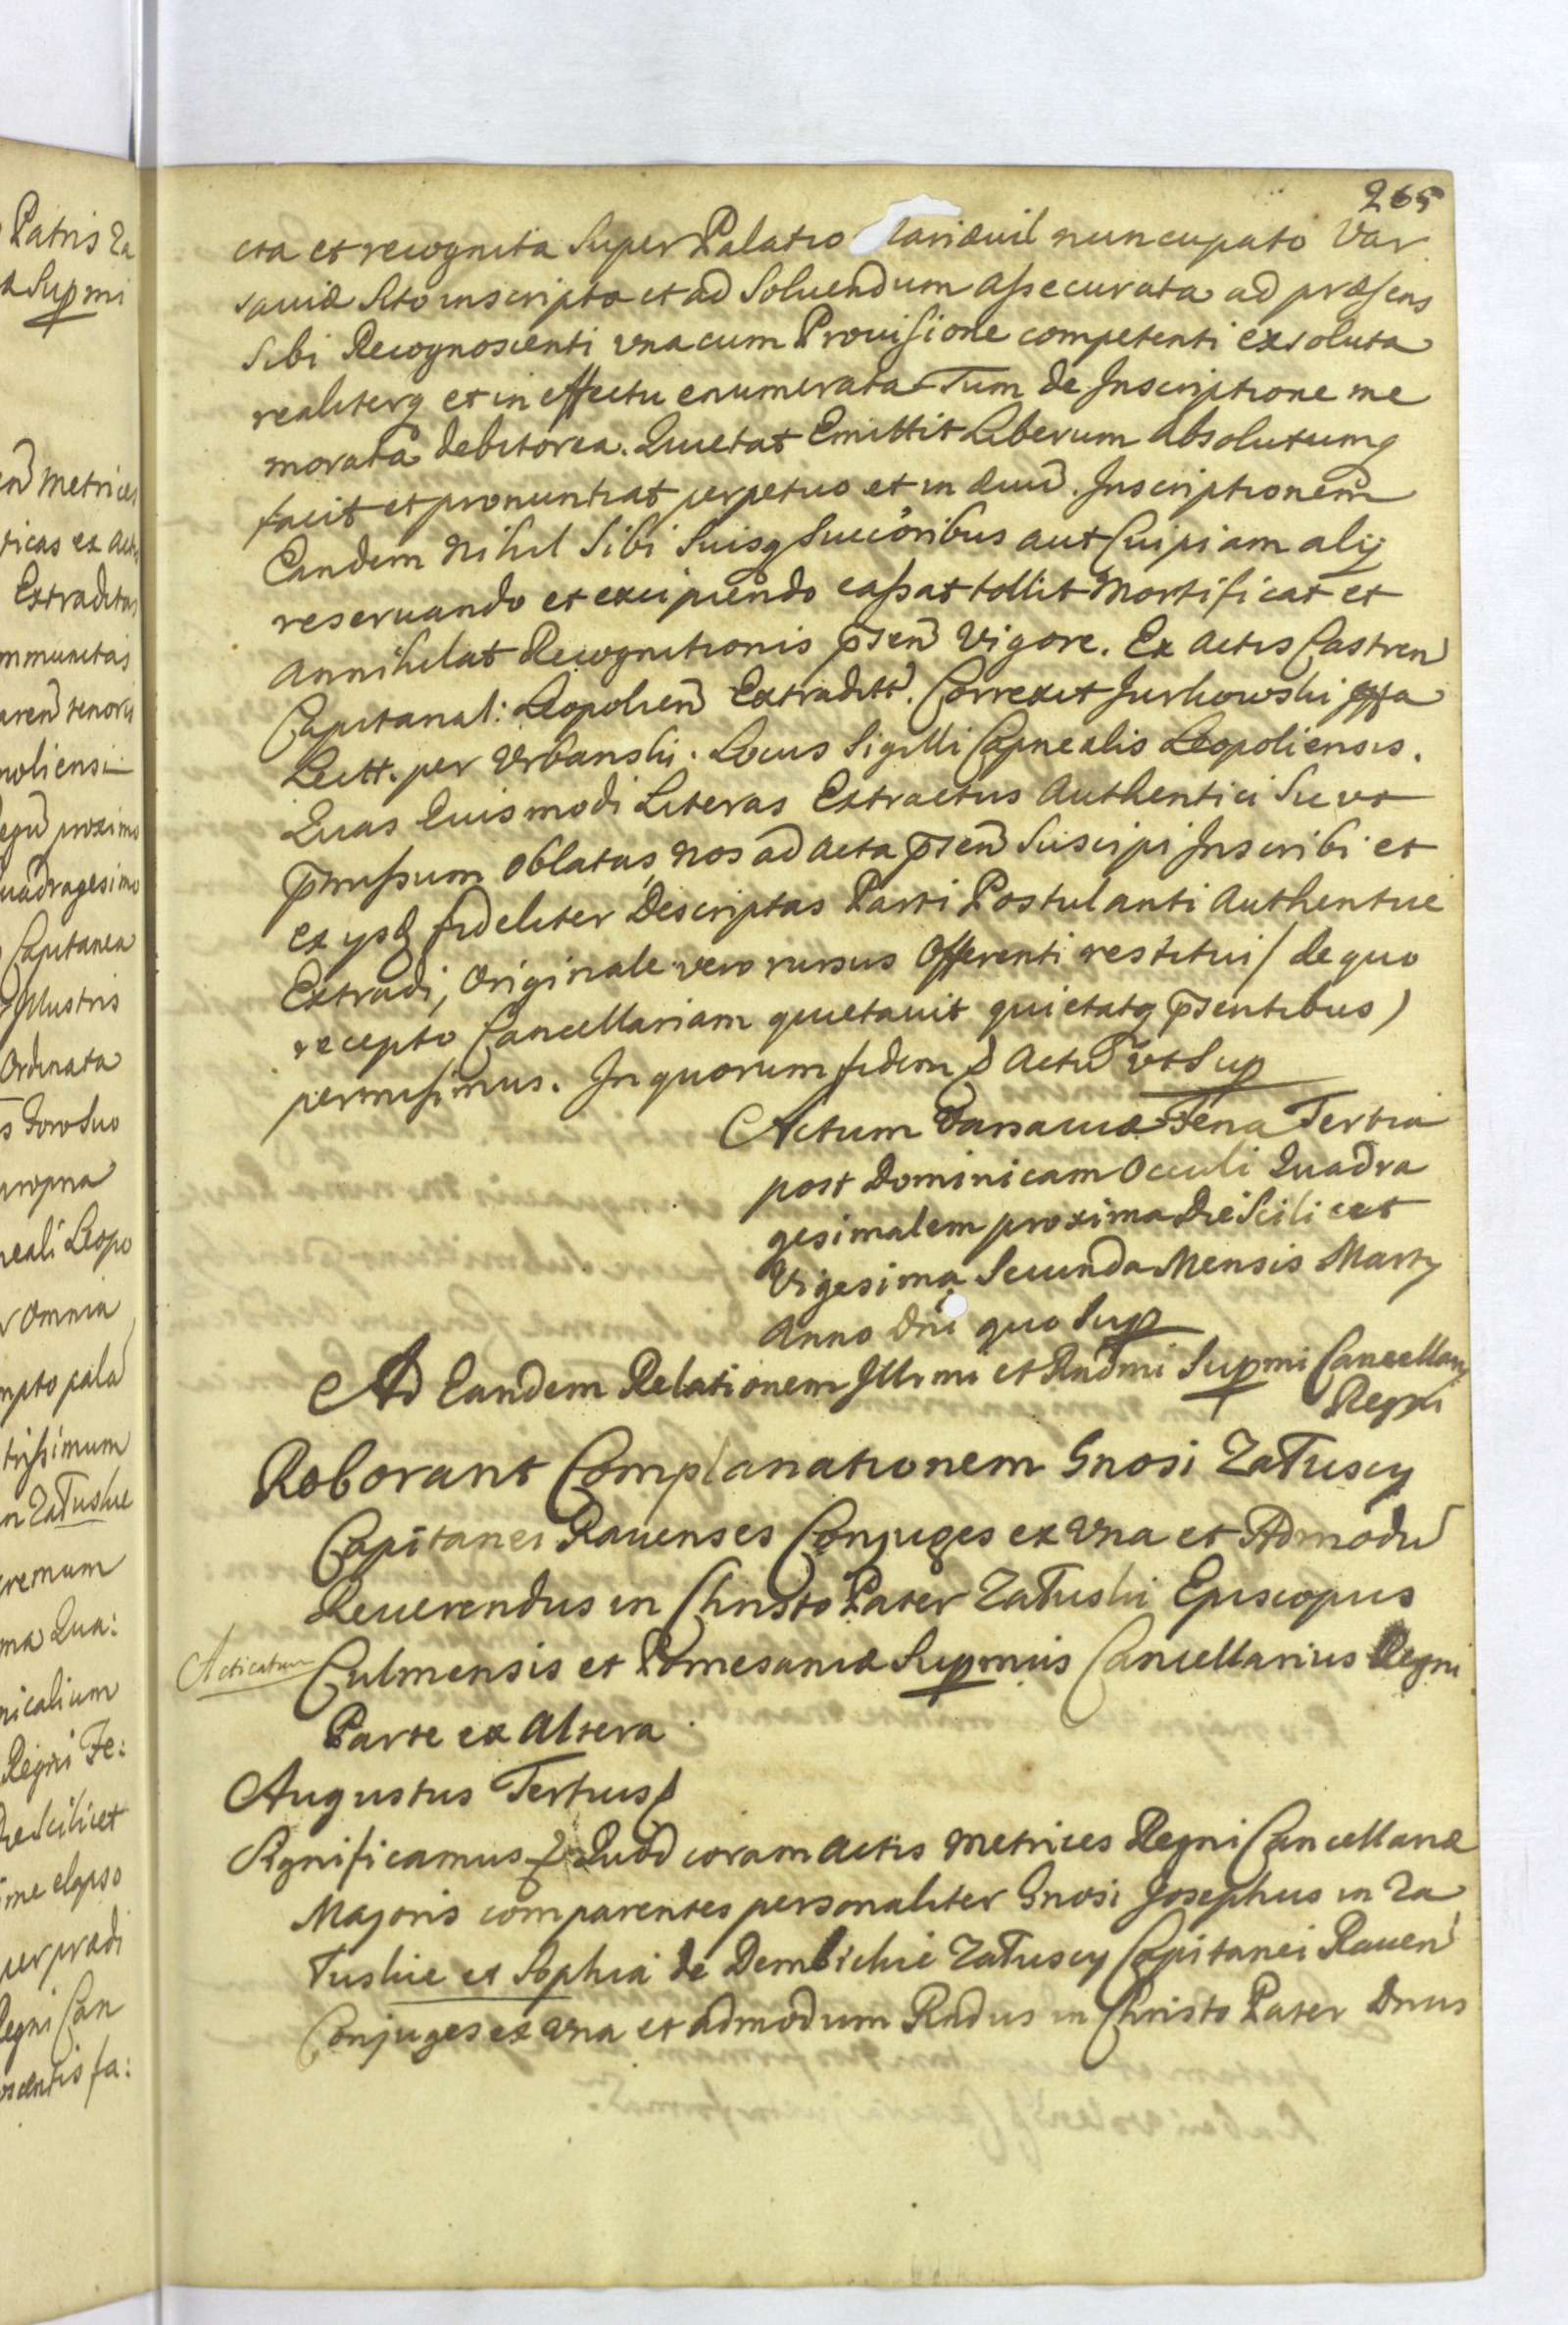 265
cta et recognita Super Palatio Mariævil nuncupato Var
saviæ Sito inscripta et ad Solvendum assecurata ad præsens
Sibi Recognoscenti una cum Provisione competenti exsoluta
realiterq et in effectu enumerata Tum de Inscriptione me
morata debitorea. Quietat Emittit Liberum absolutumq
facit et pronuntiat perpetuo et in ævū. Inscriptionem
Eandem Nihil Sibi Suisq Succoribus aut Cuipiam alij
reservando et excipiendo cassat tollit Mortificat et
Annihilat Recognitionis pñsen̄ Vigore. Ex Actis Castren̄
Capitanal: Leopolien̄ Extradit̃. Correxit Jurkowski
Lectt. per Urbanski. Locus Sigilli Capnealis Leopoliensis.
Quas Euismodi Literas Extractus Authentici Su ut
præmissum oblatas, Nos ad Acta pñsen̄ Suscipi Inscribi et
ex ysđ fideliter Descriptas Parti Postulanti Authentice
Extradi, Originale vero rursus Offerenti restitui / de quo
recepto Cancellariam quietavit quietatq pñsentibus)
permisimus. In quorum fidem & Actū ut Sup
Actum Varsaviæ Feria Tertia
post Dominicam Occuli Quadra
gesimalem proxima Die Scilicet
Vigesima Secunda Mensis Martij
Anno Dni quo Sup
Ad Eandem Relationem Illrmi et Rndmi Supmi Cancellarij
Regni
Roborant Complanationem Gnosi Załuscy
Capitanei Ravenses Conjuges ex Una et Admodū
Reverendus in Christo Pater Załuski Episcopus
Acticatum
Culmensis et Pomesaniæ Supmus Cancellarius Regni
Parte ex Altera
Augustus Tertius &
Significamus & Quod coram Actis Metrices Regni Cancellariæ
Majoris comparentes personaliter Gnosi Josephus in Za
łuskie et Sophia de Dembickie Załuscy Capitanei Raven̄
Conjuges ex Una et admodum Rndus in Christo Pater Dnus